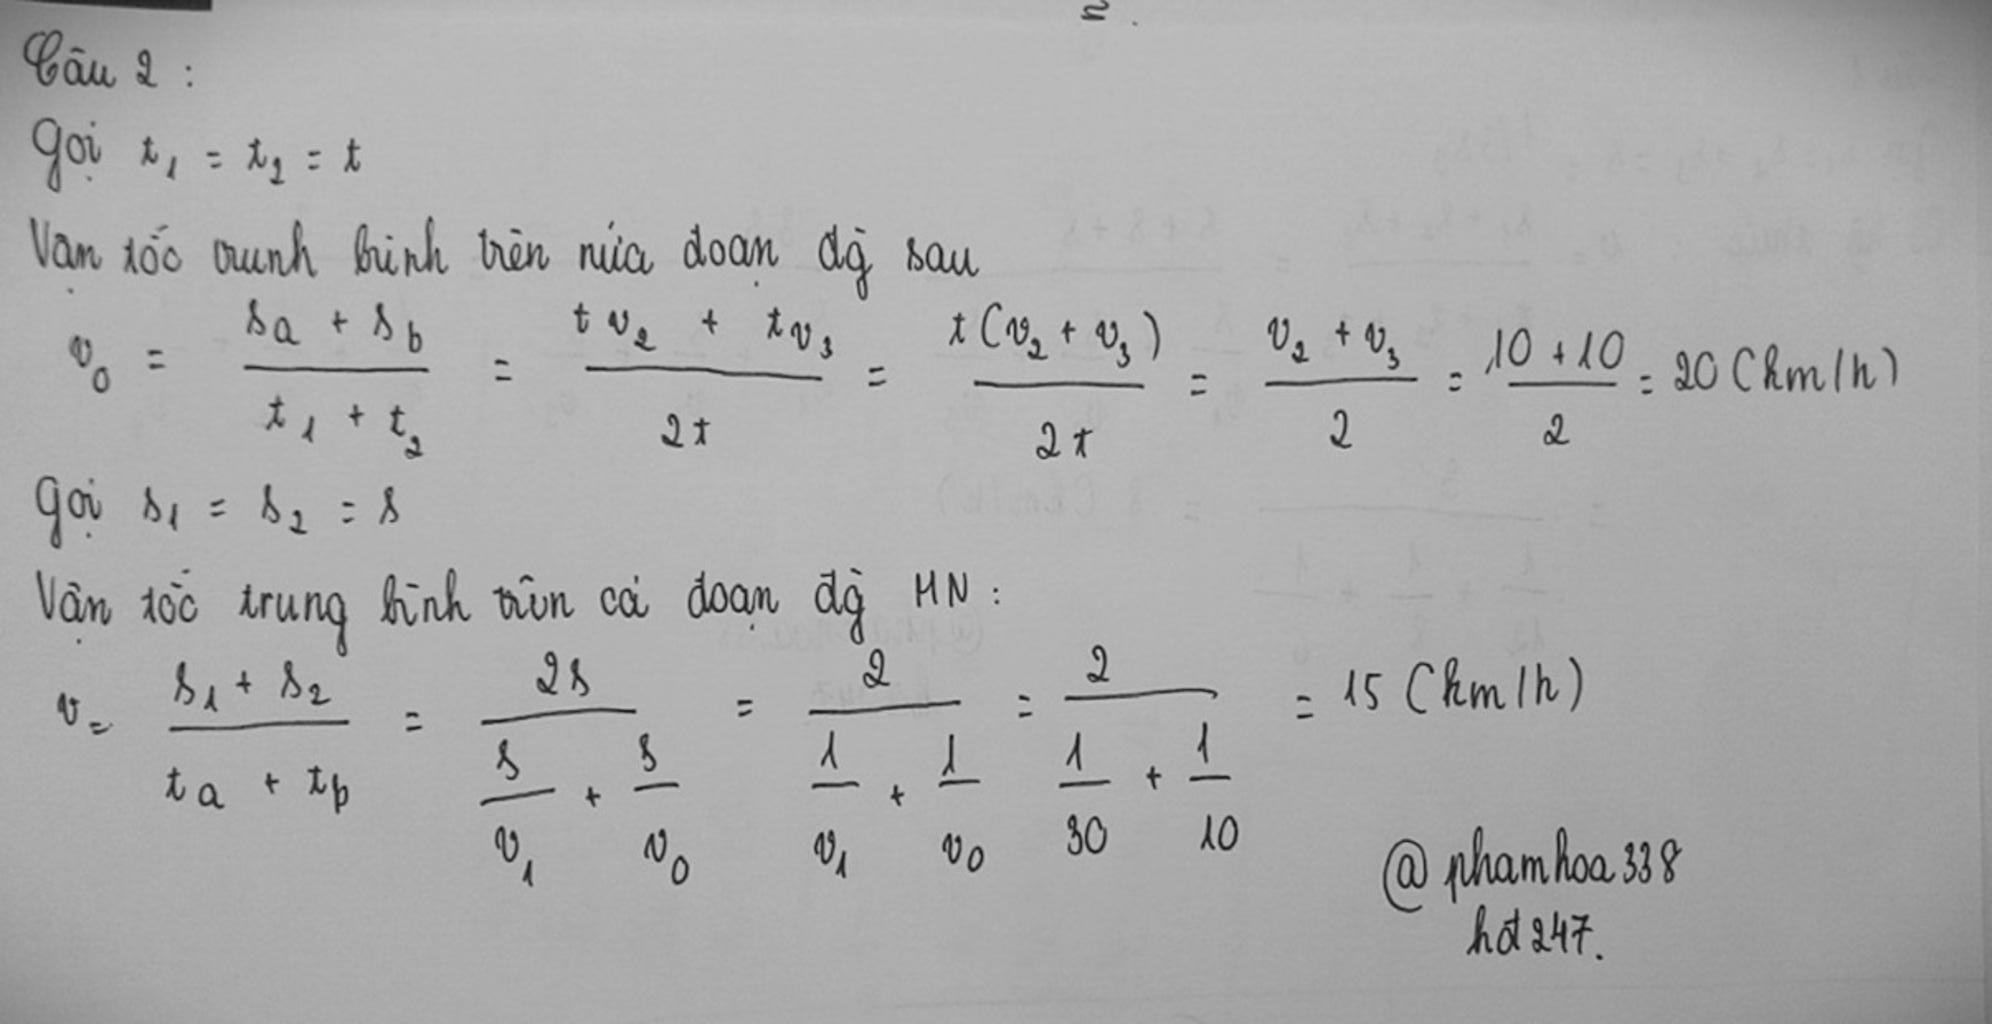 Câu 2 :
Gọi t₁ = t₂ = t
Vận tốc trunh bình trên nửa đoạn đg̀ sau
v₀ = (sa + sb) / (t₁ + t₂) = (tv₂ + tv₃) / 2t = t(v₂ + v₃) / 2t = (v₂ + v₃) / 2 = (10 + 10) / 2 = 20 (km/h)
Gọi s₁ = s₂ = s
Vận tốc trung bình trên cả đoạn đg̀ MN :
v = (s₁ + s₂) / (ta + tb) = 2s / (s/v₁ + s/v₀) = 2 / (1/v₁ + 1/v₀) = 2 / (1/30 + 1/10) = 15 (km/h)
@phamhoa338
hđ247.